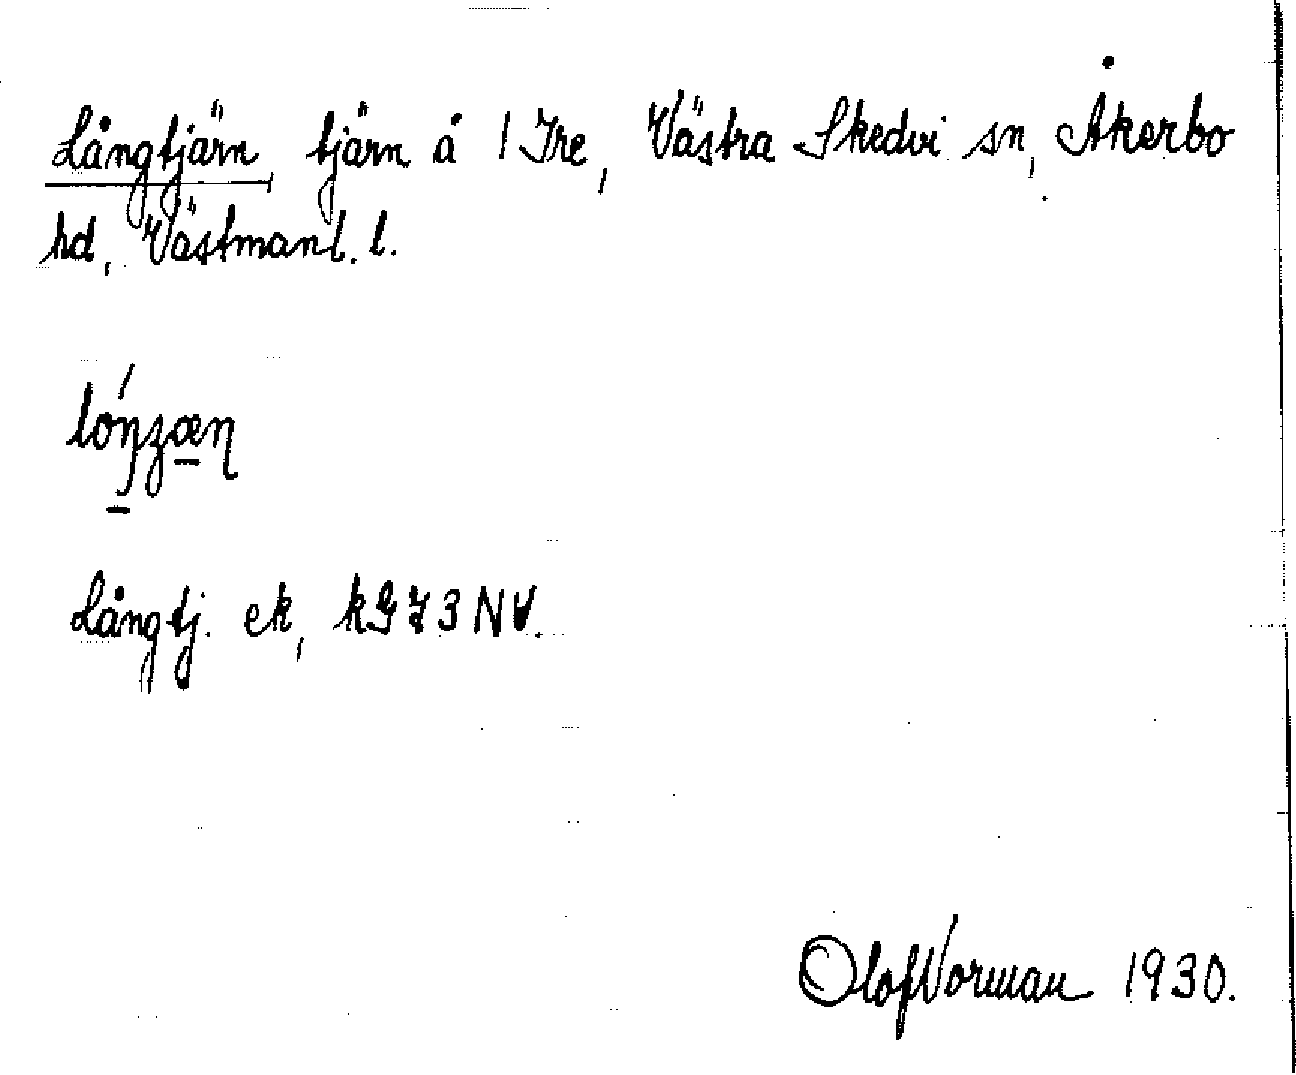 Långtjärn, tjärn å 1 Ire, Västra Skedvi sn, Åkerbo
hd, Västmanl. l.
lóŋzæɳ
Långtj. ek, kG 73 NV.
Olof Vorman 1930.